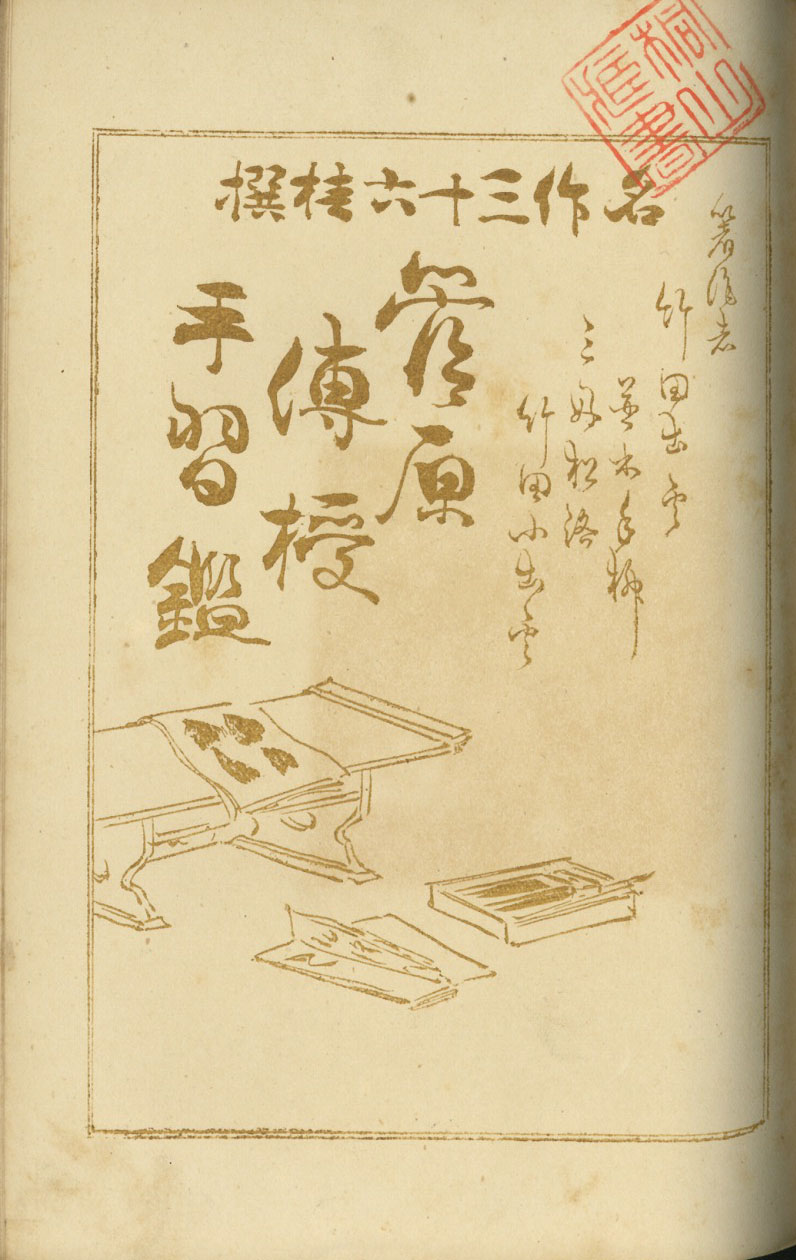 名作三十六桂撰
著作者
竹田出雲
並木千柳
三好松洛
竹田小出雲
菅原
傳授
手習鑑
桐山
藏書